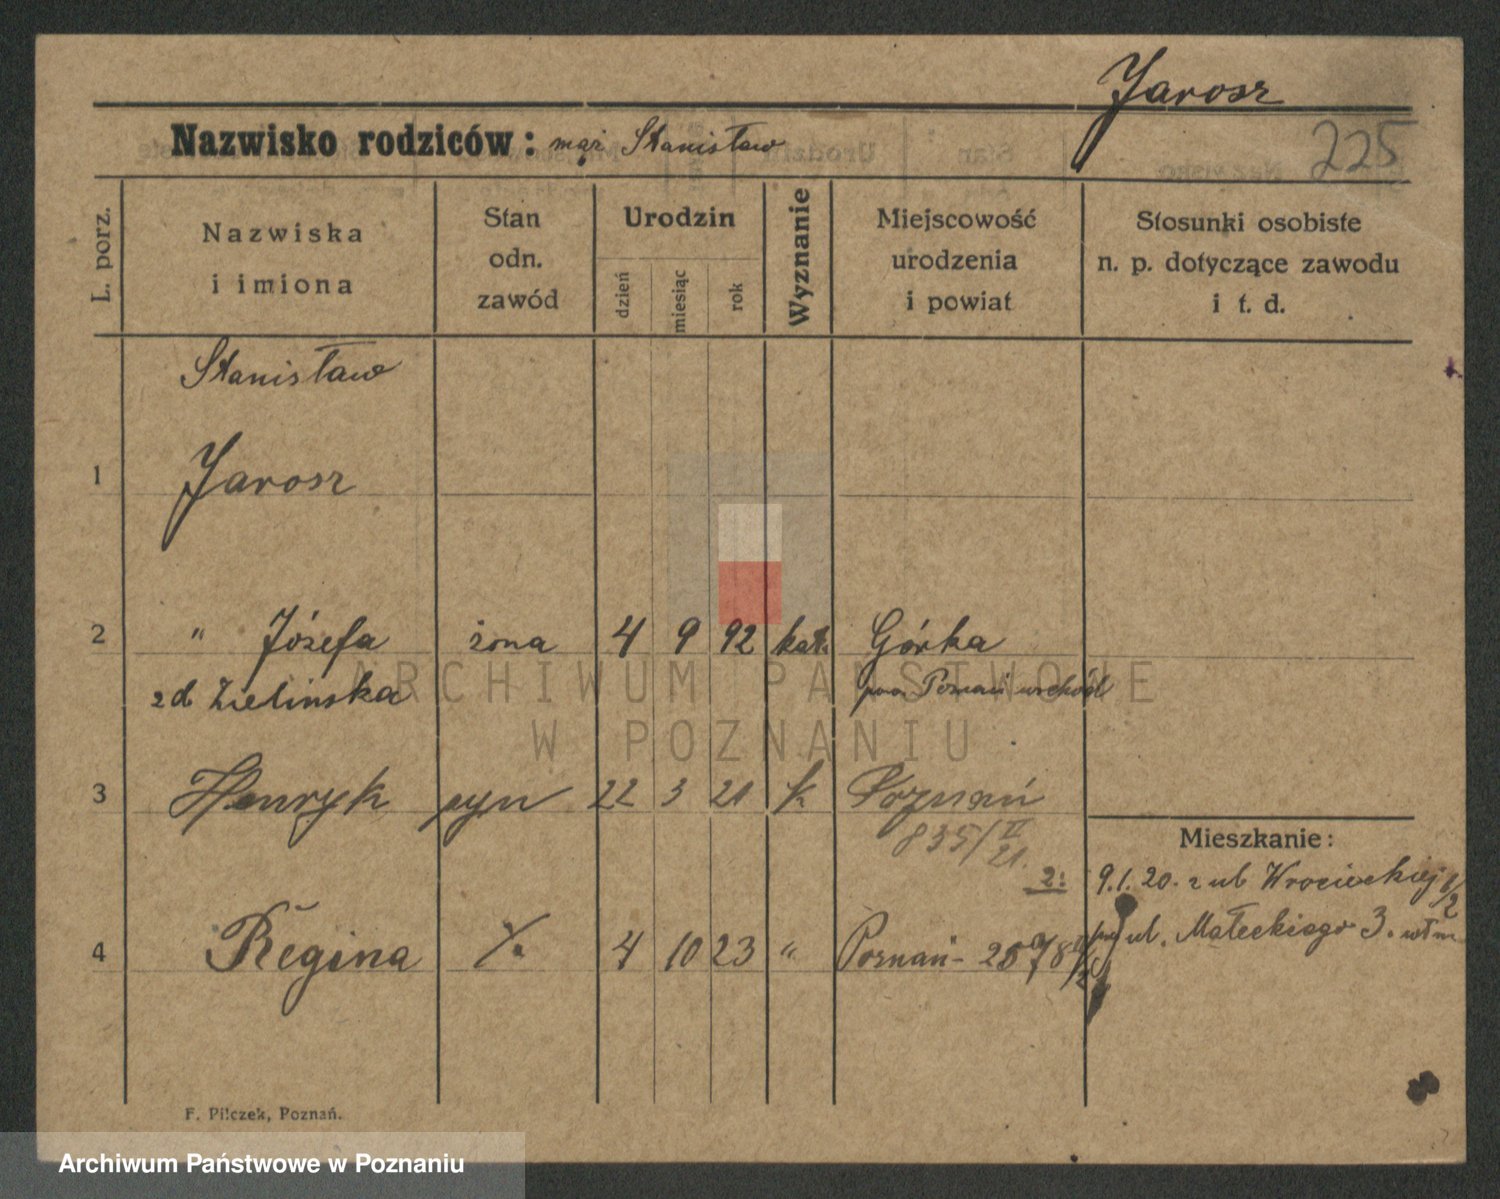 Jarosz
Nazwisko rodziców: mąż Stanisław
225
L. porz.
Nazwiska
i imiona
Stan
odn.
zawód
Urodzin
dzień
miesiąc
rok
Wyznanie
Miejscowość
urodzenia
i powiat
Stosunki osobiste
n. p. dotyczące zawodu
i t. d.
Stanisław
1 Jarosz
2 " Józefa żona 4 9 92 kat. Górka
z d Zielińska pow Poznań wschód
3 Henryk syn 22 3 21 k Poznań
835/II
21.
Mieszkanie:
2! 9.1.20. z ul Wrocieckiej 1/2
ul. Małeckiego 3.
4 Regina ./. 4 10 23 " Poznań -
F. Pilczek, Poznań.
ARCHIWUM PAŃSTWOWE
W POZNANIU
Archiwum Państwowe w Poznaniu